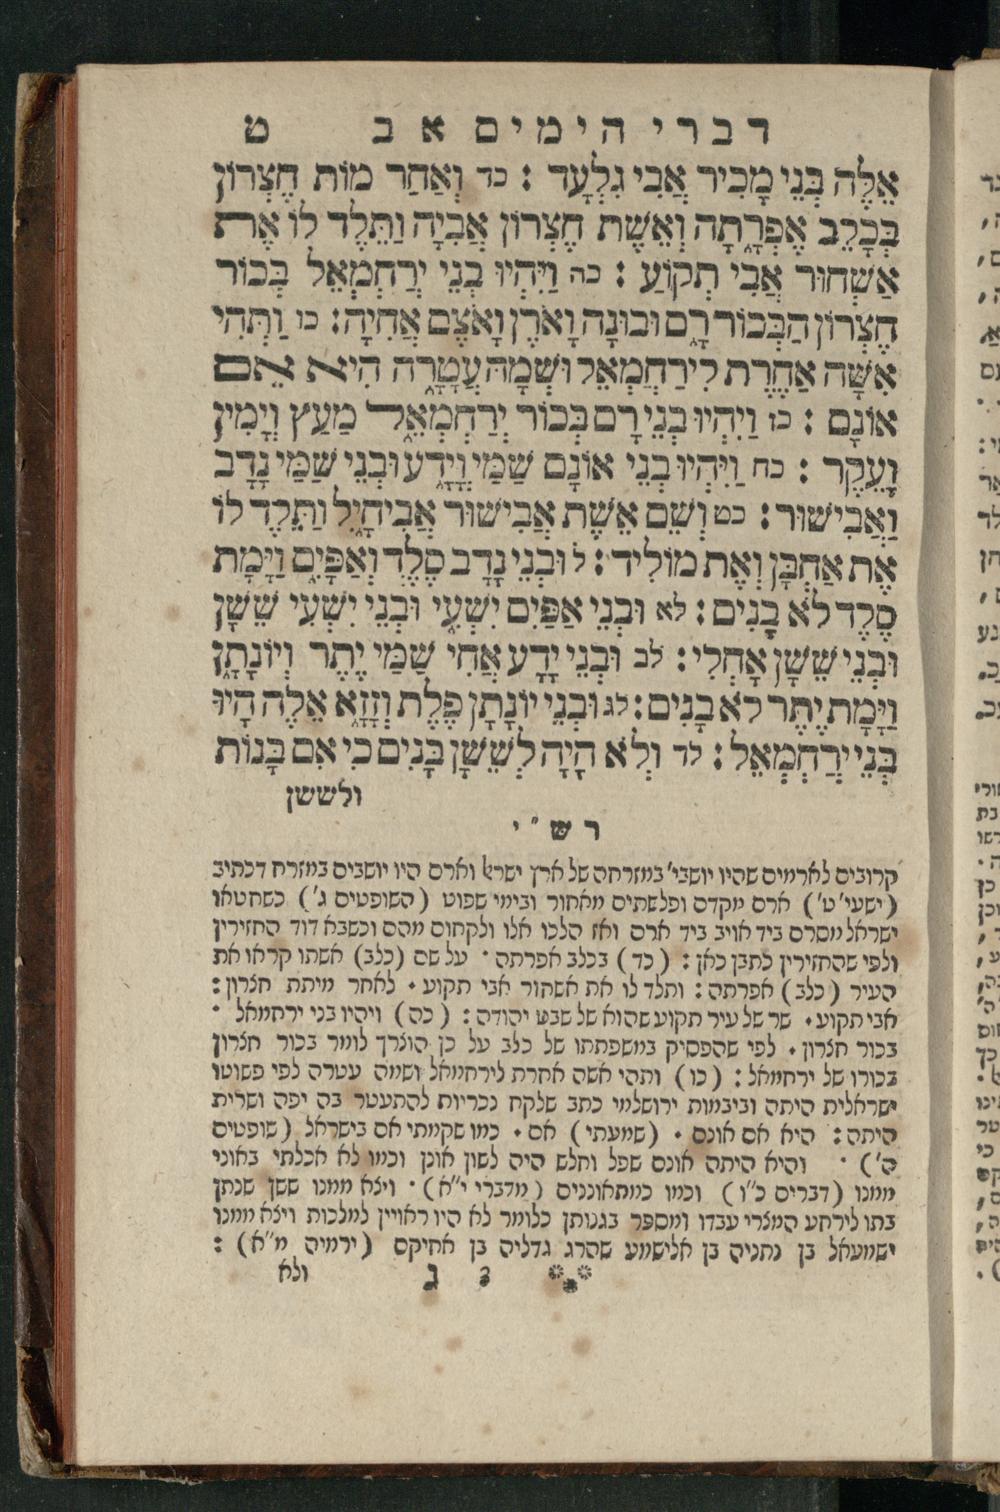 דברי הימים א ב ט
אֵלֶּה בְּנֵי מָכִיר אֲבִי גִלְעָד : כד וְאַחַר מוֹת חֶצְרוֹן
בְּכָלֵב אֶפְרָתָה וְאֵשֶׁת חֶצְרוֹן אֲבִיָּה וַתֵּלֶד לוֹ אֶת
אַשְׁחוּר אֲבִי תְקוֹעַ : כה וַיִּהְיוּ בְנֵי יְרַחְמְאֵל בְּכוֹר
חֶצְרוֹן הַבְּכוֹר רָם וּבוּנָה וָאֹרֶן וָאֹצֶם אֲחִיָּה : כו וַתְּהִי
אִשָּׁה אַחֶרֶת לִירַחְמְאֵל וּשְׁמָהּ עֲטָרָה הִיא אֵם
אוֹנָם : כז וַיִּהְיוּ בְנֵי רָם בְּכוֹר יְרַחְמְאֵל מַעַץ וְיָמִין
וָעֵקֶר : כח וַיִּהְיוּ בְנֵי אוֹנָם שַׁמַּי וְיָדָע וּבְנֵי שַׁמַּי נָדָב
וַאֲבִישׁוּר : כט וְשֵׁם אֵשֶׁת אֲבִישׁוּר אֲבִיחָיִל וַתֵּלֶד לוֹ
אֶת אַחְבָּן וְאֶת מוֹלִיד : ל וּבְנֵי נָדָב סֶלֶד וְאַפָּיִם וַיָּמָת
סֶלֶד לֹא בָנִים : לא וּבְנֵי אַפַּיִם יִשְׁעִי וּבְנֵי יִשְׁעִי שֵׁשָׁן
וּבְנֵי שֵׁשָׁן אַחְלִי : לב וּבְנֵי יָדָע אֲחִי שַׁמַּי יֶתֶר וְיוֹנָתָן
וַיָּמָת יֶתֶר לֹא בָנִים : לג וּבְנֵי יוֹנָתָן פֶּלֶת וְזָזָא אֵלֶּה הָיוּ
בְּנֵי יְרַחְמְאֵל : לד וְלֹא הָיָה לְשֵׁשָׁן בָּנִים כִּי אִם בָּנוֹת
ולששן
רש״י
קרובים לארמים שהיו יושבי' במזרחה של ארץ ישראל וארם היו יושבים במזרח דכתיב
(ישעי' ט') ארם מקדם ופלשתים מאחור ובימי שפוט (השופטים ג') כשחטאו
ישראל מסרם ביד אויב ביד ארם ואז הלכו אלו ולקחום מהם וכשבא דוד החזירין
ולפי שהחזירין לתבן כאן : (כד) בכלב אפרתה · על שם (כלב) אשתו קראו את
העיר (כלב) אפרתה : ותלד לו את אשחור אבי תקוע · לאחר מיתת חצרון :
אבי תקוע · שר של עיר תקוע שהוא של שבט יהודה : (כה) ויהיו בני ירחמאל ·
בכור חצרון · לפי שהפסיק במשפחתו של כלב על כן הוצרך לומר בכור חצרון
בכורו של ירחמאל : (כו) ותהי אשה אחרת לירחמאל ושמה עטרה לפי פשוטו
ישראלית היתה וביבמות ירושלמי כתב שלקח נכריות להתעטר בה יפה ושרית
היתה : היא אם אונם · (שמעתי) אם · כמו שקמתי אם בישראל (שופטים
ה') · והיא היתה אונם שפל וחלש היה לשון אונן וכמו לא אכלתי באוני
ממנו (דברים כ״ו) וכמו כמתאוננים (מדברי י״א) · ויצא ממנו ששן שנתן
בתו לירחע המצרי עבדו ומספר בגנותן כלומר לא היו ראויין למלכות ויצא ממנו
ישמעאל בן נתניה בן אלישמע שהרג גדליה בן אחיקם (ירמיה מ״א) :
ב ג ולא